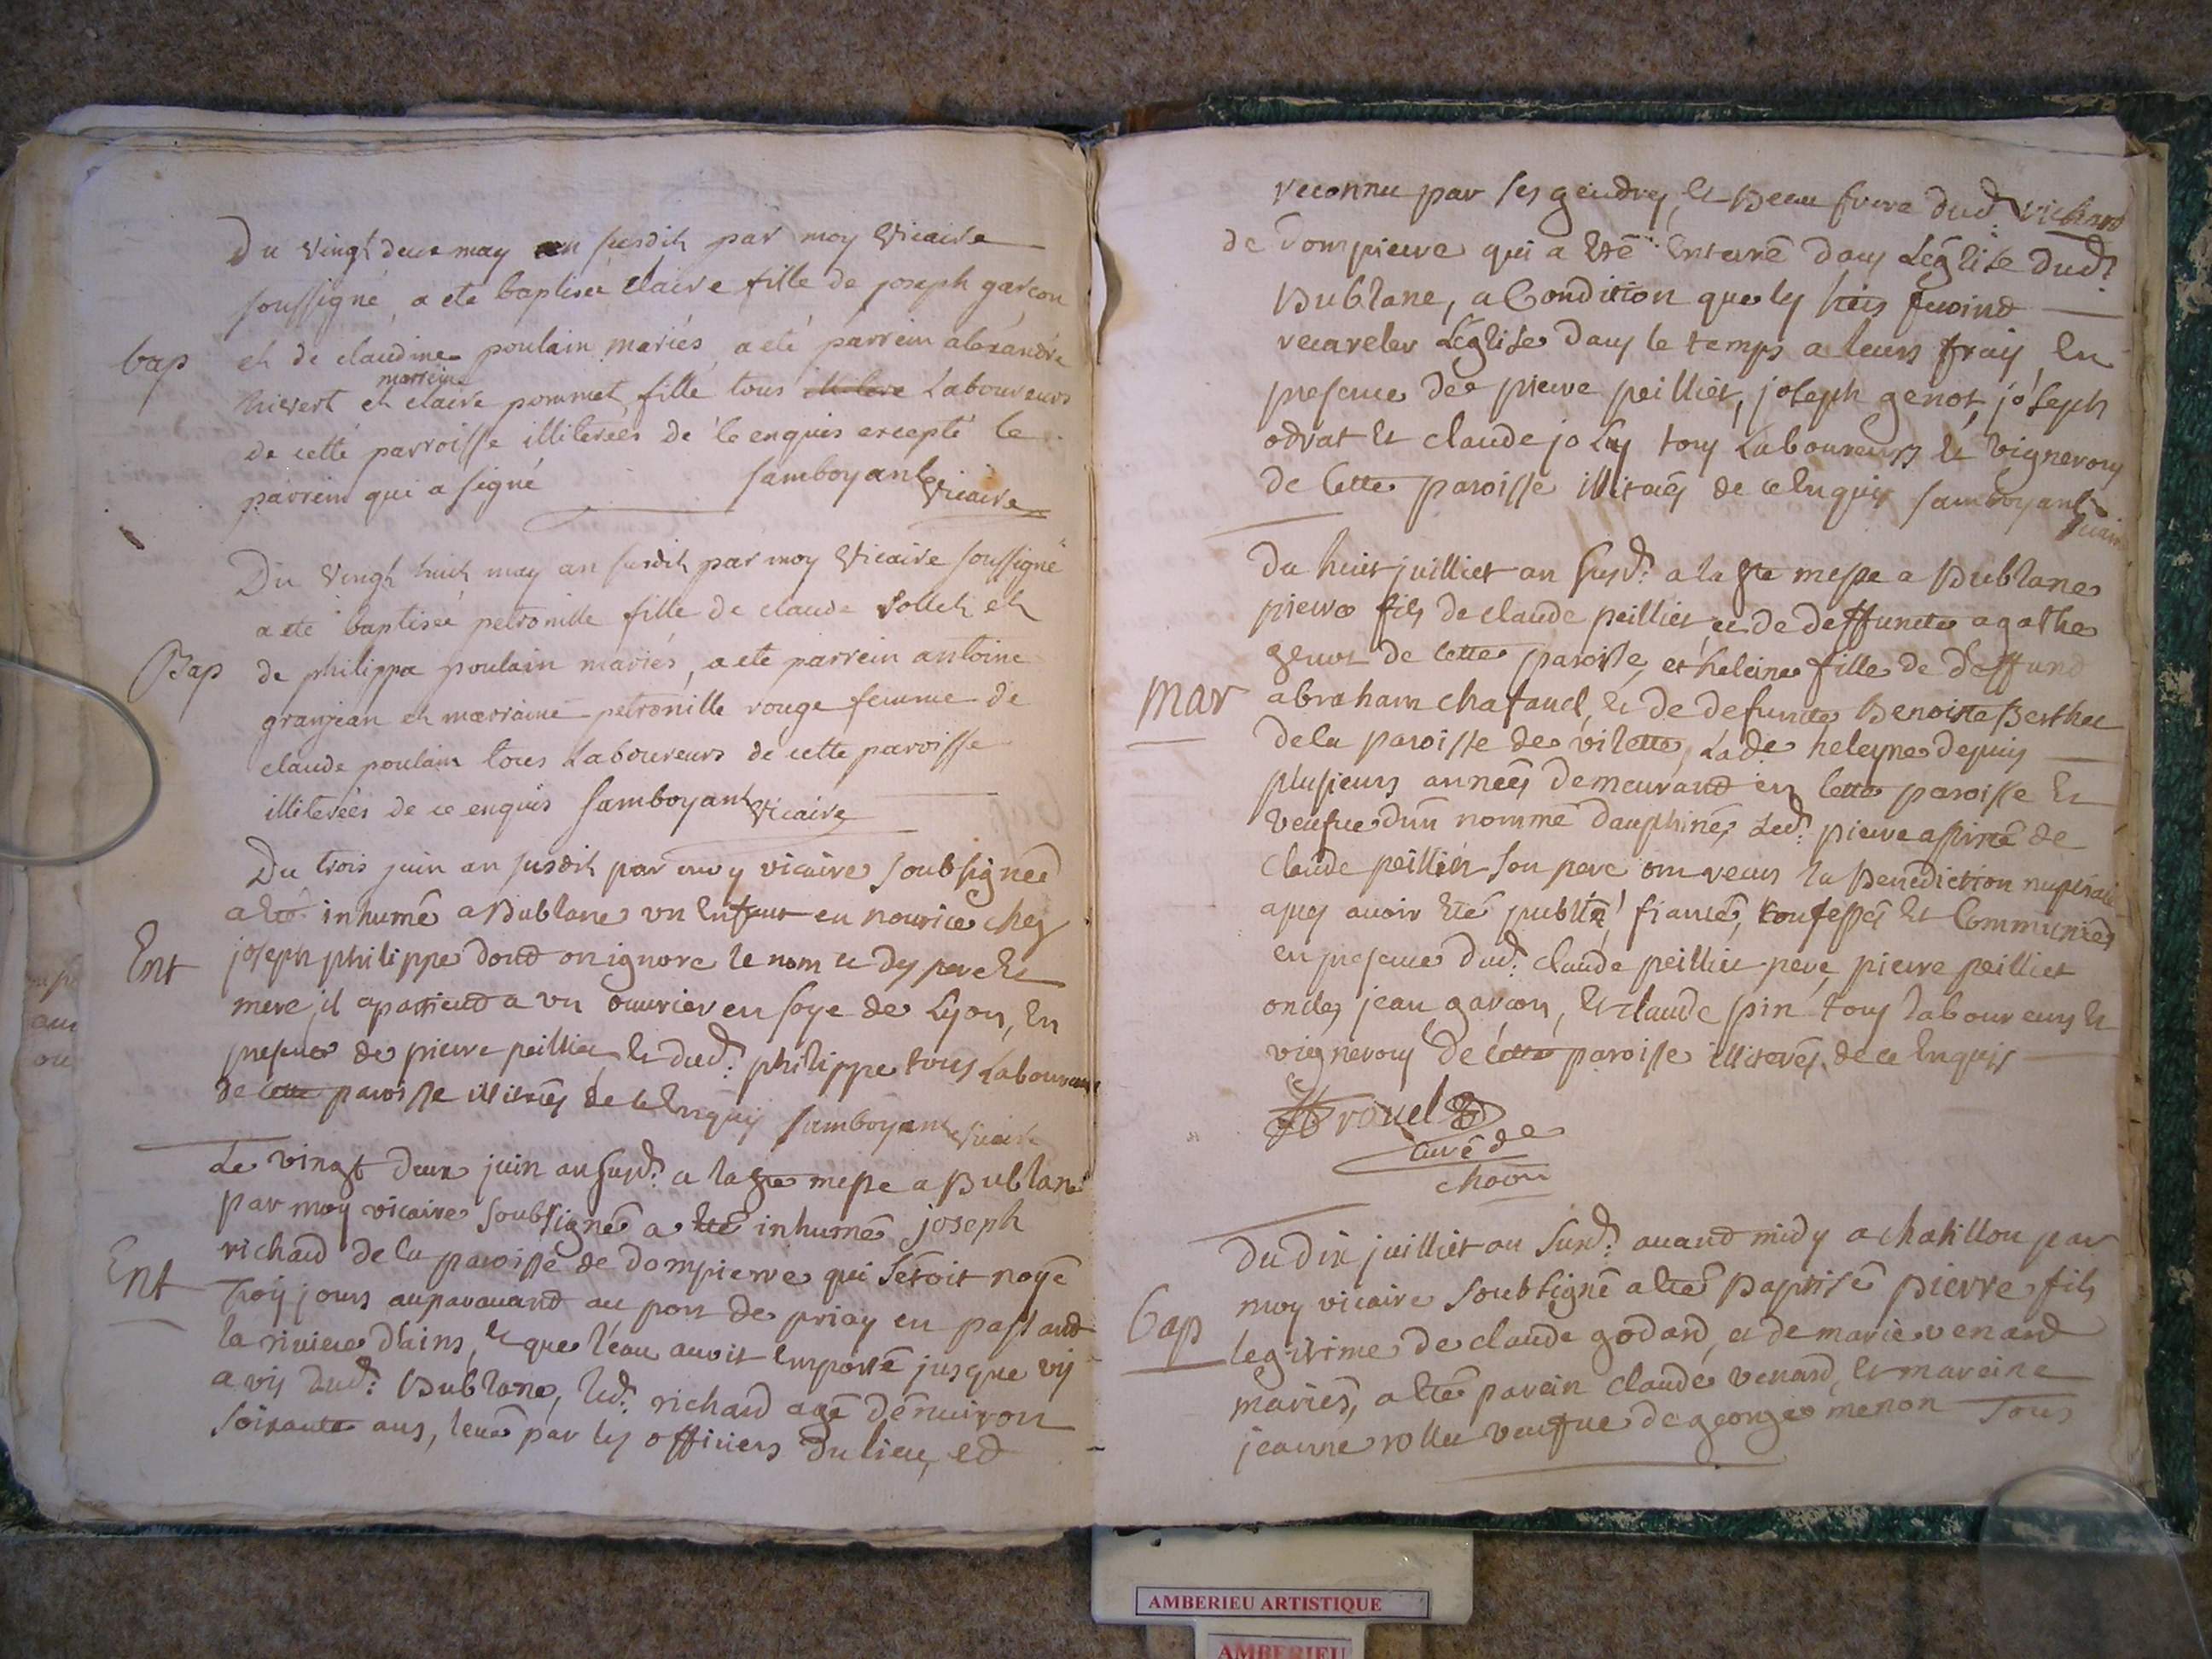 Du vingt deux may an susdit par moy Vicaire
soussigné, a eté baptisée claire fille de joseph garçon
bap
et de claudine poulain mariés, a eté parrein alexandre
marreine
et claire pommet, fille tous Laboureurs
de cette parroisse illiterées de ce enquis excepté le
parrein qui a signé Samboyant Vicaire
Du Vingt huit may an susdit par moy Vicaire soussigné
a eté baptisée petronille fille de claude et
Bap
de philippa poulain mariés, a eté parrein antoine
granjean et marraine petronille rouge femme de
claude poulain tous Laboureurs de cette paroisse
illiterées de ce enquis Samboyant Vicaire
Du trois juin an susdit par moy vicaire soubsigné
a eté inhumé a Bublane un Enfant en nourice chez
Ent
joseph philippe dont on ignore le nom et dy pere et
mere, il apartient a vn ouurier en soye de Lyon, En
presence de pierre peilliet, et dud: philippe tous Laboureurs
de cette paroisse illitrés de ce Enquis Samboyant Vicaire
Le vingt deux juin an susd: a la gde messe a Bublane
par moy vicaire soubsigné a eté inhumé joseph
richard de la paroisse de dompierre qui sétoit noyé
Ent
troy jours auparauant au port de priay en passant
la riuiere d'ains, et que l'eau auoit Emporté jusque vis
a vis dud: Bublane, led: richard agé dénuiron
soixante ans, leué par les officiers du lieu, et
reconnu par ses gendres, et Beau frere dud: richard
de dompierre qui a eté Enterré dans Léglise dud:
Bublane, a Condition que les
recareler Léglise dans le temps a leurs frais, En
presence de pierre peilliet, joseph genot, joseph
odrat et claude joly tous Laboureurs et vignerons
de Cette paroisse illitrés de ce Enquis Samboyant
vicaire
Du huit juilliet an susd: a la gde messe a Bublane
pierre fils de claude peilliet, et de deffuncte agathe
genot de Cette paroisse, et heleine fille de deffunct
Mar
abraham chafaud, et de defuncte Benoiste Berthet
de la paroisse de vilette, Lade heleyne depuis
plusieurs années demeurant en Cette paroisse et
veufue d'un nommé dauphiné, Led: pierre de
claude peilliet son pere ont receus la Benediction nuptiale
apres auoir eté publié, fiancé, Confessés et Communiés
en presence dud: claude peilliet pere, pierre peilliet
oncle, jean garçon, et claude pin tous Laboureurs et
vignerons de Cette paroisse illiterés, de ce Enquis
curé de
Du dix juilliet an susd: auant midy a chatillon par
moy vicaire soubsigné a eté Baptisé pierre fils
bap
legitime de claude godard, et de marie venard
mariés, a eté parein claude venard, et mareine
jeanne rollet veufue de george menon Tous
AMBERIEU ARTISTIQUE
AMBERIEU